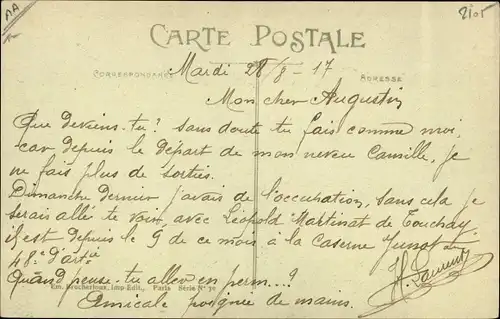 AA
2105
CARTE POSTALE
CORRESPONDANCE
Mardi 28/8-17
ADRESSE
Mon cher Augustin
Que deviens-tu? Sans doute tu fais comme moi,
car depuis le départ de mon neveu Camille, je
ne fais plus de sorties.
Dimanche dernier j'avais de l'occupation, sans cela je
serais allé te voir, avec Léopold Martinat de Touchay
il est depuis le 9 de ce mois à la Caserne Junot au
48e d'artie
Quand pense-tu aller en perm...?
H. Laurent
Em. Boucherjoux, Imp-Edit., Paris Série N° 70
Amicale poignée de mains.